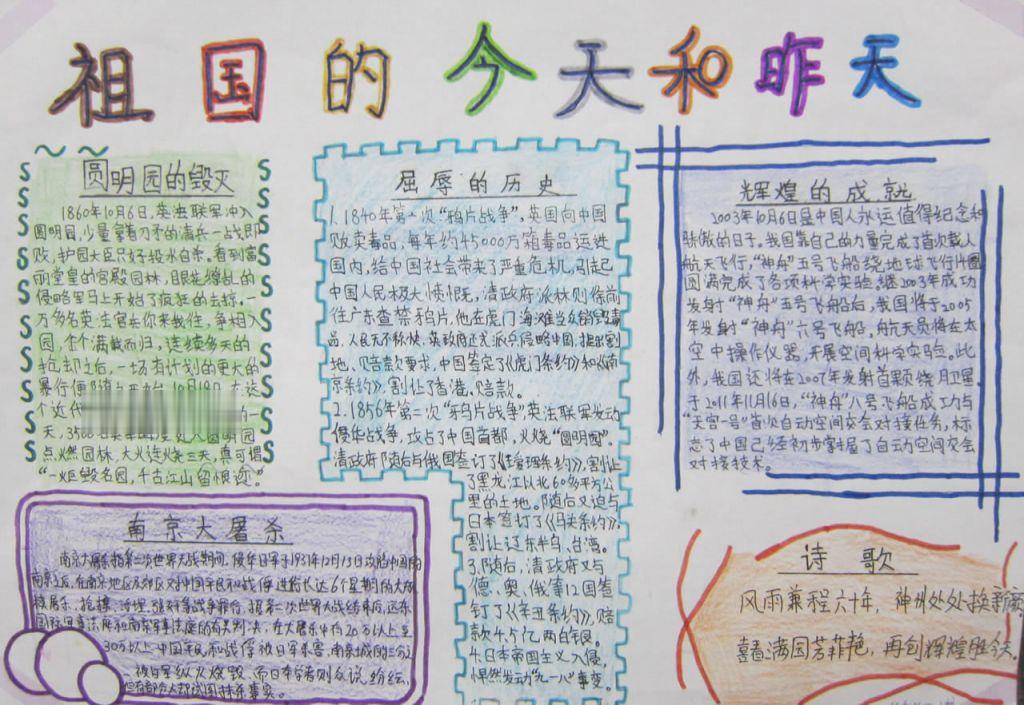 祖国的今天和昨天
圆明园的毁灭
1860年10月6日,英法联军冲入
圆明园,少量拿着刀矛的清兵一战即
败,护园大臣只好投水自杀,看到富
丽堂皇的宫殿园林,眼花缭乱的
侵略军马上开始了疯狂的去掠,一
万多名英法官兵你来我往,争相入
园,个个满载而归,连续多天的
抢劫之后,一场有计划的更大的
暴行便随之开始,10月18日
个近代 的一
天,3500 圆明园
点燃园林,大火连烧三天,真可谓
“一炬毁名园,千古江山留恨迹。”
屈辱的历史
1.1840年第一次“鸦片战争”,英国向中国
贩卖毒品,每年约45000万箱毒品运进
国内,给中国社会带来了严重危机,引起
中国人民极大愤恨,清政府派林则徐前
往广东查禁鸦片,他在虎门海滩当众销毁毒
品,人民无不称快,英政府还尤派兵侵略中国,提出割
地、赔款要求,中国签定了《虎门条约》和《南
京条约》,割让了香港、赔款。
2.1856年第二次“牙鸟片战争”英法联军发动
侵华战争,攻占了中国首都,火烧“圆明园”。
清政府随后与俄国签订了《瑷珲条约》,割让
了黑龙江以北60多平方公
里的土地。随后又迫与
日本签打了《马关条约》,
割让辽东半岛、台湾。
3.随后,清政府又与
德、奥、俄等12国签
钉了《辛丑条约》,赔
款4.5亿两白银。
4.日本帝国主义入侵,
悍然发动“九一八”事变。
辉煌的成就
2003年10月6日是中国人永远值得纪念和
骄傲的日子,我国靠自己的力量完成了首次载人
航天飞行,“神舟”五号飞船绕地球飞行14圈
圆满完成了各项科学实验,继2003年成功
发射“神舟”五号飞船后,我国将于2005
年发射“神舟”六号飞船,航天员将在太
空中操作仪器,开展空间科学实验。此
外,我国还将在2007年发射首颗绕月卫星。
于2011年11月16日,“神舟”八号飞船成功与
“天宫一号”首次自动空间交会对接任务,标
志了中国已经初步掌握了自动空间交会
对接技术。
南京大屠杀
南京大屠杀指第二次世界大战期间,侵华日军于1937年12月13日攻陷中国的
南京之后,在南京地区及郊区对中国平民和战俘进行长达6个星期的大规
模屠杀、抢掠、 等战争罪行。据第二次世界大战结束后远东
国际军事法庭和南京军事法庭的有关判决,在大屠杀中有20万以上至
30万以上中国平民和战俘被日军杀害,南京城的三分之一
被日军纵火烧毁,而日本学者则众说纷纭,
但有部分人却试图抹杀事实。
诗歌
风雨兼程六十年,神州处处换新颜
喜看满园芳菲艳,再创辉煌胜今天